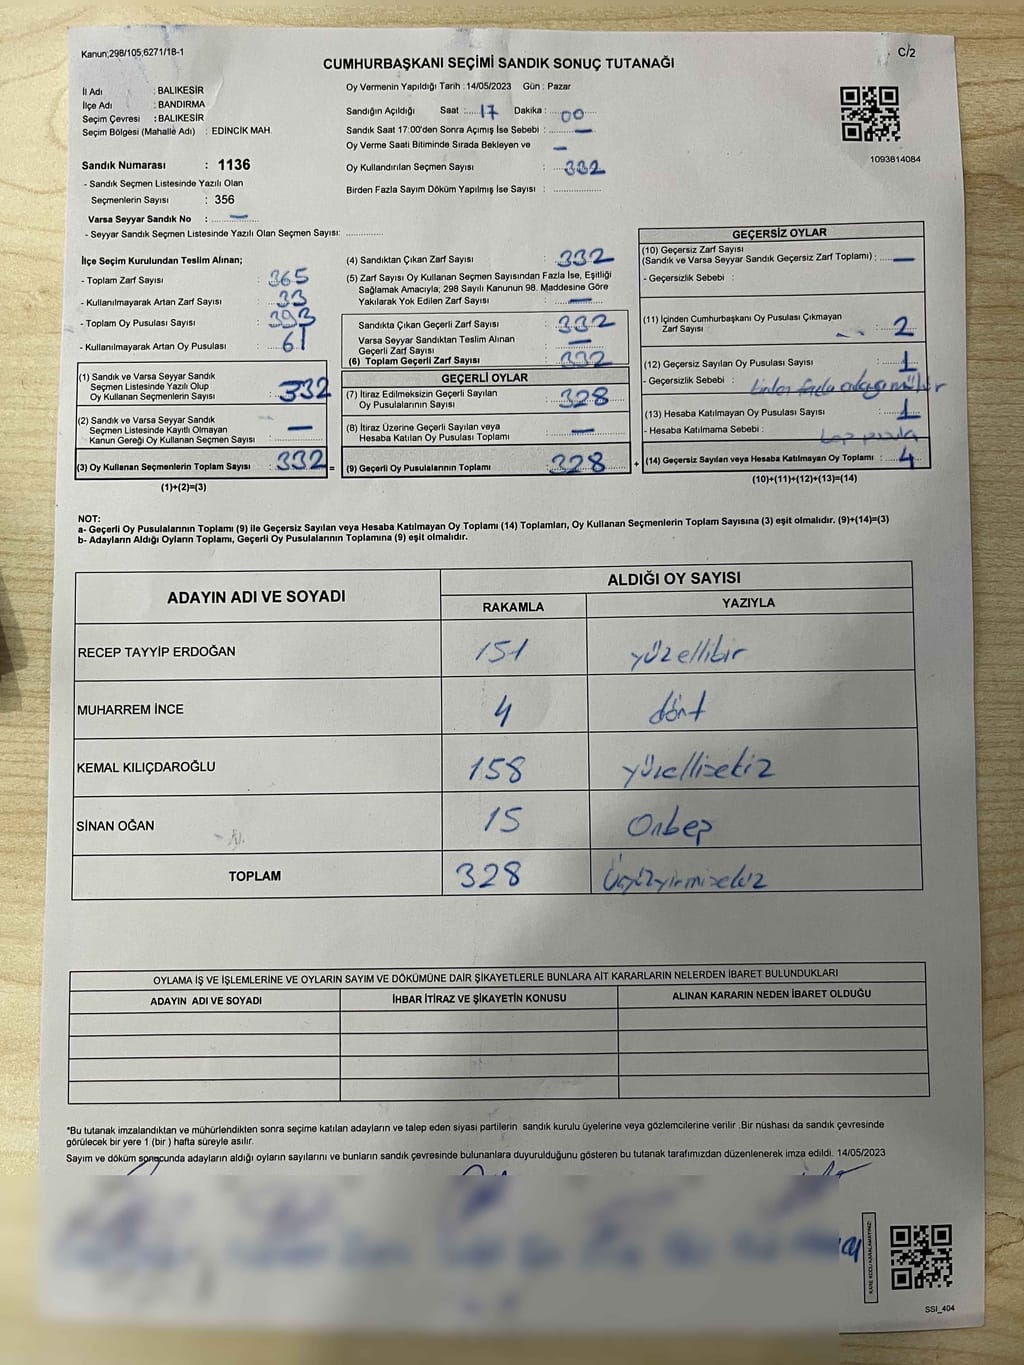 Kanun;298/105;6271/18-1
C/2
CUMHURBAŞKANI SEÇİMİ SANDIK SONUÇ TUTANAĞI
İl Adı : BALIKESİR
İlçe Adı : BANDIRMA
Seçim Çevresi : BALIKESİR
Seçim Bölgesi (Mahalle Adı) : EDİNCİK MAH.
Sandık Numarası : 1136
- Sandık Seçmen Listesinde Yazılı Olan
Seçmenlerin Sayısı : 356
Varsa Seyyar Sandık No : —
- Seyyar Sandık Seçmen Listesinde Yazılı Olan Seçmen Sayısı: ............
Oy Vermenin Yapıldığı Tarih : 14/05/2023 Gün : Pazar
Sandığın Açıldığı Saat : 17 Dakika : 00
Sandık Saat 17:00'den Sonra Açımış İse Sebebi : —
Oy Verme Saati Bitiminde Sırada Bekleyen ve —
Oy Kullandırılan Seçmen Sayısı : 332
Birden Fazla Sayım Döküm Yapılmış İse Sayısı : ...............
1093814084
İlçe Seçim Kurulundan Teslim Alınan;
- Toplam Zarf Sayısı : 365
- Kullanılmayarak Artan Zarf Sayısı : 33
- Toplam Oy Pusulası Sayısı : 393
- Kullanılmayarak Artan Oy Pusulası : 61
(1) Sandık ve Varsa Seyyar Sandık
Seçmen Listesinde Yazılı Olup
Oy Kullanan Seçmenlerin Sayısı : 332
(2) Sandık ve Varsa Seyyar Sandık
Seçmen Listesinde Kayıtlı Olmayan
Kanun Gereği Oy Kullanan Seçmen Sayısı : —
(3) Oy Kullanan Seçmenlerin Toplam Sayısı : 332 =
(1)+(2)=(3)
(4) Sandıktan Çıkan Zarf Sayısı : 332
(5) Zarf Sayısı Oy Kullanan Seçmen Sayısından Fazla İse, Eşitliği
Sağlamak Amacıyla; 298 Sayılı Kanunun 98. Maddesine Göre
Yakılarak Yok Edilen Zarf Sayısı : —
Sandıkta Çıkan Geçerli Zarf Sayısı : 332
Varsa Seyyar Sandıktan Teslim Alınan
Geçerli Zarf Sayısı : —
(6) Toplam Geçerli Zarf Sayısı : 332
GEÇERLİ OYLAR
(7) İtiraz Edilmeksizin Geçerli Sayılan
Oy Pusulalarının Sayısı : 328
(8) İtiraz Üzerine Geçerli Sayılan veya
Hesaba Katılan Oy Pusulası Toplamı : —
(9) Geçerli Oy Pusulalarının Toplamı : 328 +
GEÇERSİZ OYLAR
(10) Geçersiz Zarf Sayısı
(Sandık ve Varsa Seyyar Sandık Geçersiz Zarf Toplamı) : —
- Geçersizlik Sebebi :
(11) İçinden Cumhurbaşkanı Oy Pusulası Çıkmayan
Zarf Sayısı : 2
(12) Geçersiz Sayılan Oy Pusulası Sayısı : 1
- Geçersizlik Sebebi : birden fazla adaya mühür
(13) Hesaba Katılmayan Oy Pusulası Sayısı : 1
- Hesaba Katılmama Sebebi : boş pusula
(14) Geçersiz Sayılan veya Hesaba Katılmayan Oy Toplamı : 4
(10)+(11)+(12)+(13)=(14)
NOT:
a- Geçerli Oy Pusulalarının Toplamı (9) ile Geçersiz Sayılan veya Hesaba Katılmayan Oy Toplamı (14) Toplamları, Oy Kullanan Seçmenlerin Toplam Sayısına (3) eşit olmalıdır. (9)+(14)=(3)
b- Adayların Aldığı Oyların Toplamı, Geçerli Oy Pusulalarının Toplamına (9) eşit olmalıdır.
ADAYIN ADI VE SOYADI ALDIĞI OY SAYISI
RAKAMLA YAZIYLA
RECEP TAYYİP ERDOĞAN 151 yüzellibir
MUHARREM İNCE 4 dört
KEMAL KILIÇDAROĞLU 158 yüzellisekiz
SİNAN OĞAN 15 Onbeş
TOPLAM 328 Üçyüzyirmisekiz
OYLAMA İŞ VE İŞLEMLERİNE VE OYLARIN SAYIM VE DÖKÜMÜNE DAİR ŞİKAYETLERLE BUNLARA AİT KARARLARIN NELERDEN İBARET BULUNDUKLARI
ADAYIN ADI VE SOYADI İHBAR İTİRAZ VE ŞİKAYETİN KONUSU ALINAN KARARIN NEDEN İBARET OLDUĞU
*Bu tutanak imzalandıktan ve mühürlendikten sonra seçime katılan adayların ve talep eden siyasi partilerin sandık kurulu üyelerine veya gözlemcilerine verilir .Bir nüshası da sandık çevresinde
görülecek bir yere 1 (bir ) hafta süreyle asılır.
Sayım ve döküm sonucunda adayların aldığı oyların sayılarını ve bunların sandık çevresinde bulunanlara duyurulduğunu gösteren bu tutanak tarafımızdan düzenlenerek imza edildi. 14/05/2023
KARE KODU KARALAMAYINIZ!
SSI_404